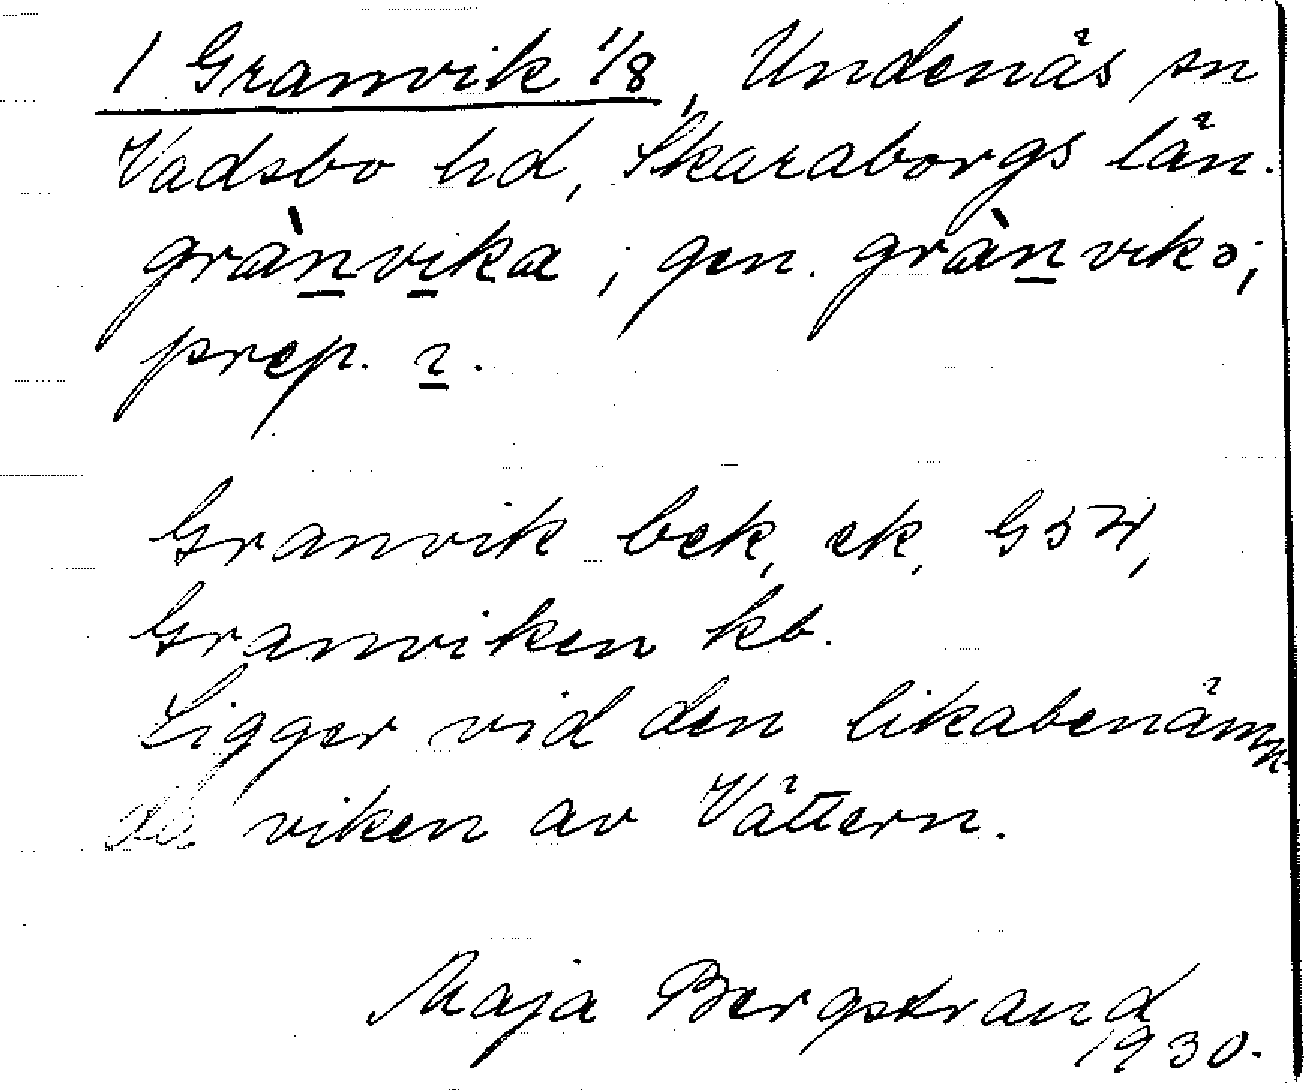 1 Granvik 1/8, Undenäs sn
Vadsbo hd, Skaraborgs län.
grànvika; gen. grànvikɔ;
prep. ɩ.
Granvik bek, ek, G54,
Granviken kb.
Ligger vid den likabenämn-
da viken av Vättern.
Maja Bergstrand
1930.